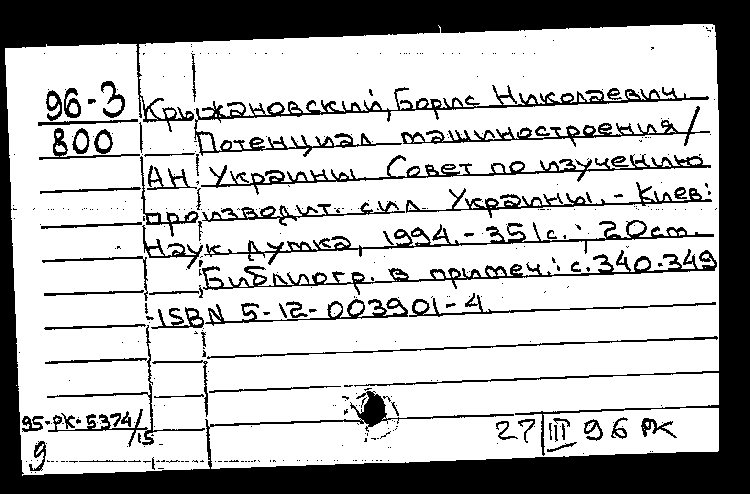 96-3 Крыжановский, Борис Николаевич.
800 Потенциал машиностроения/
АН Украины. Совет по изучению
производит. сил Украины. - Киев:
Наук. думка, 1994. - 351с.; 20 cm.
Библиогр. в примеч.: с. 340-349
-ISBN 5-12-003901-4.
95-PK-5374/15
9
27/III 96 PK